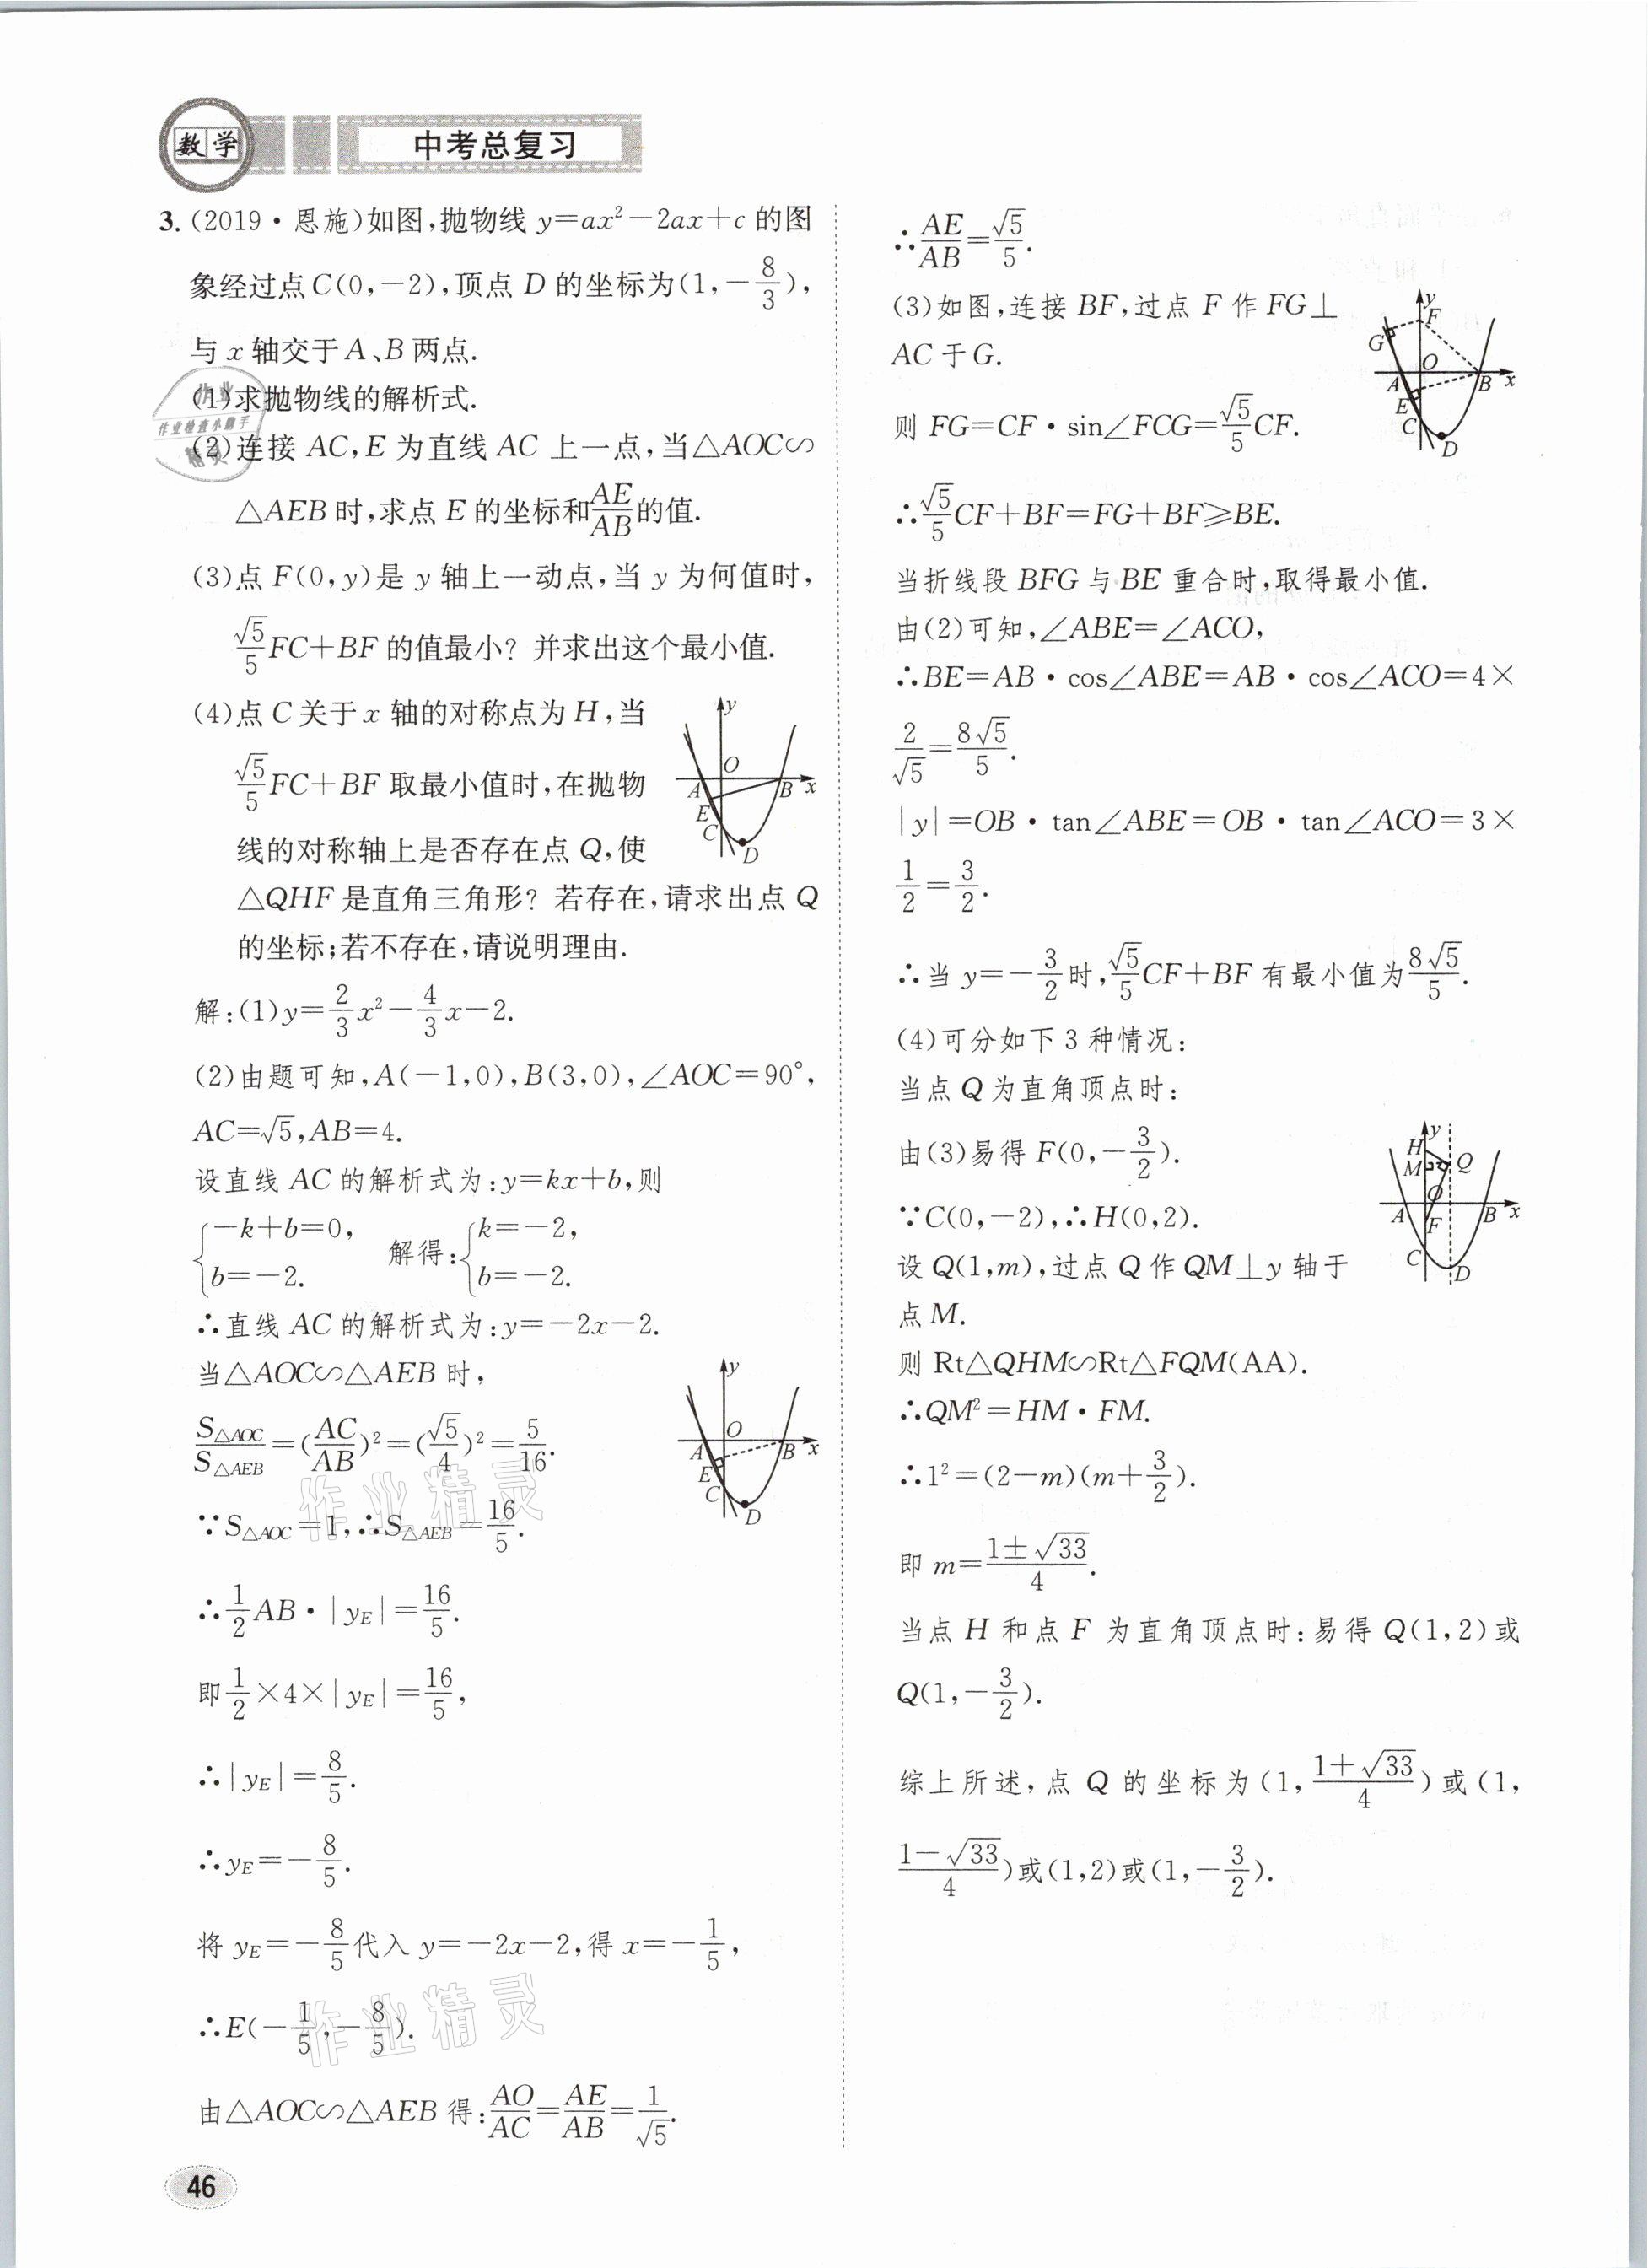 数学
中考总复习
3.(2019·恩施)如图,抛物线 y=ax²-2ax+c 的图
象经过点C(0,-2),顶点 D 的坐标为(1,-8/3),
与 x 轴交于 A、B 两点.
(1)求抛物线的解析式.
(2)连接 AC,E 为直线 AC 上一点,当△AOC∽
△AEB 时,求点 E 的坐标和AE/AB的值.
(3)点 F(0,y)是 y 轴上一动点,当 y 为何值时,
√5/5 FC+BF 的值最小? 并求出这个最小值.
(4)点 C 关于 x 轴的对称点为 H,当
√5/5 FC+BF 取最小值时,在抛物
线的对称轴上是否存在点 Q,使
△QHF 是直角三角形? 若存在,请求出点 Q
的坐标;若不存在,请说明理由.
y
O
A
B
x
E
C
D
解:(1)y=2/3 x²-4/3 x-2.
(2)由题可知,A(-1,0),B(3,0),∠AOC=90°,
AC=√5,AB=4.
设直线 AC 的解析式为:y=kx+b,则
{-k+b=0, b=-2. 解得:{k=-2, b=-2.
∴直线 AC 的解析式为:y=-2x-2.
当△AOC∽△AEB 时,
S△AOC/S△AEB=(AC/AB)²=(√5/4)²=5/16.
∵S△AOC=1,∴S△AEB=16/5.
∴1/2 AB·|yE|=16/5.
即1/2×4×|yE|=16/5,
∴|yE|=8/5.
∴yE=-8/5.
将 yE=-8/5代入 y=-2x-2,得 x=-1/5,
∴E(-1/5,-8/5).
由△AOC∽△AEB 得:AO/AC=AE/AB=1/√5.
y
O
A
B
x
E
C
D
46
∴AE/AB=√5/5.
(3)如图,连接 BF,过点 F 作 FG⊥
AC 于 G.
则 FG=CF·sin∠FCG=√5/5 CF.
∴√5/5 CF+BF=FG+BF≥BE.
当折线段 BFG 与 BE 重合时,取得最小值.
由(2)可知,∠ABE=∠ACO,
∴BE=AB·cos∠ABE=AB·cos∠ACO=4×
2/√5=8√5/5.
|y|=OB·tan∠ABE=OB·tan∠ACO=3×
1/2=3/2.
∴当 y=-3/2时,√5/5 CF+BF 有最小值为8√5/5.
y
F
G
O
A
B
x
E
C
D
(4)可分如下 3 种情况:
当点 Q 为直角顶点时:
由(3)易得 F(0,-3/2).
∵C(0,-2),∴H(0,2).
设 Q(1,m),过点 Q 作 QM⊥y 轴于
点 M.
则 Rt△QHM∽Rt△FQM(AA).
∴QM²=HM·FM.
∴1²=(2-m)(m+3/2).
即 m=(1±√33)/4.
当点 H 和点 F 为直角顶点时:易得 Q(1,2)或
Q(1,-3/2).
综上所述,点 Q 的坐标为(1,(1+√33)/4)或(1,
(1-√33)/4)或(1,2)或(1,-3/2).
y
H
M
Q
O
A
F
B
x
C
D
作业
作业检查小助手
精灵
作业精灵
作业精灵